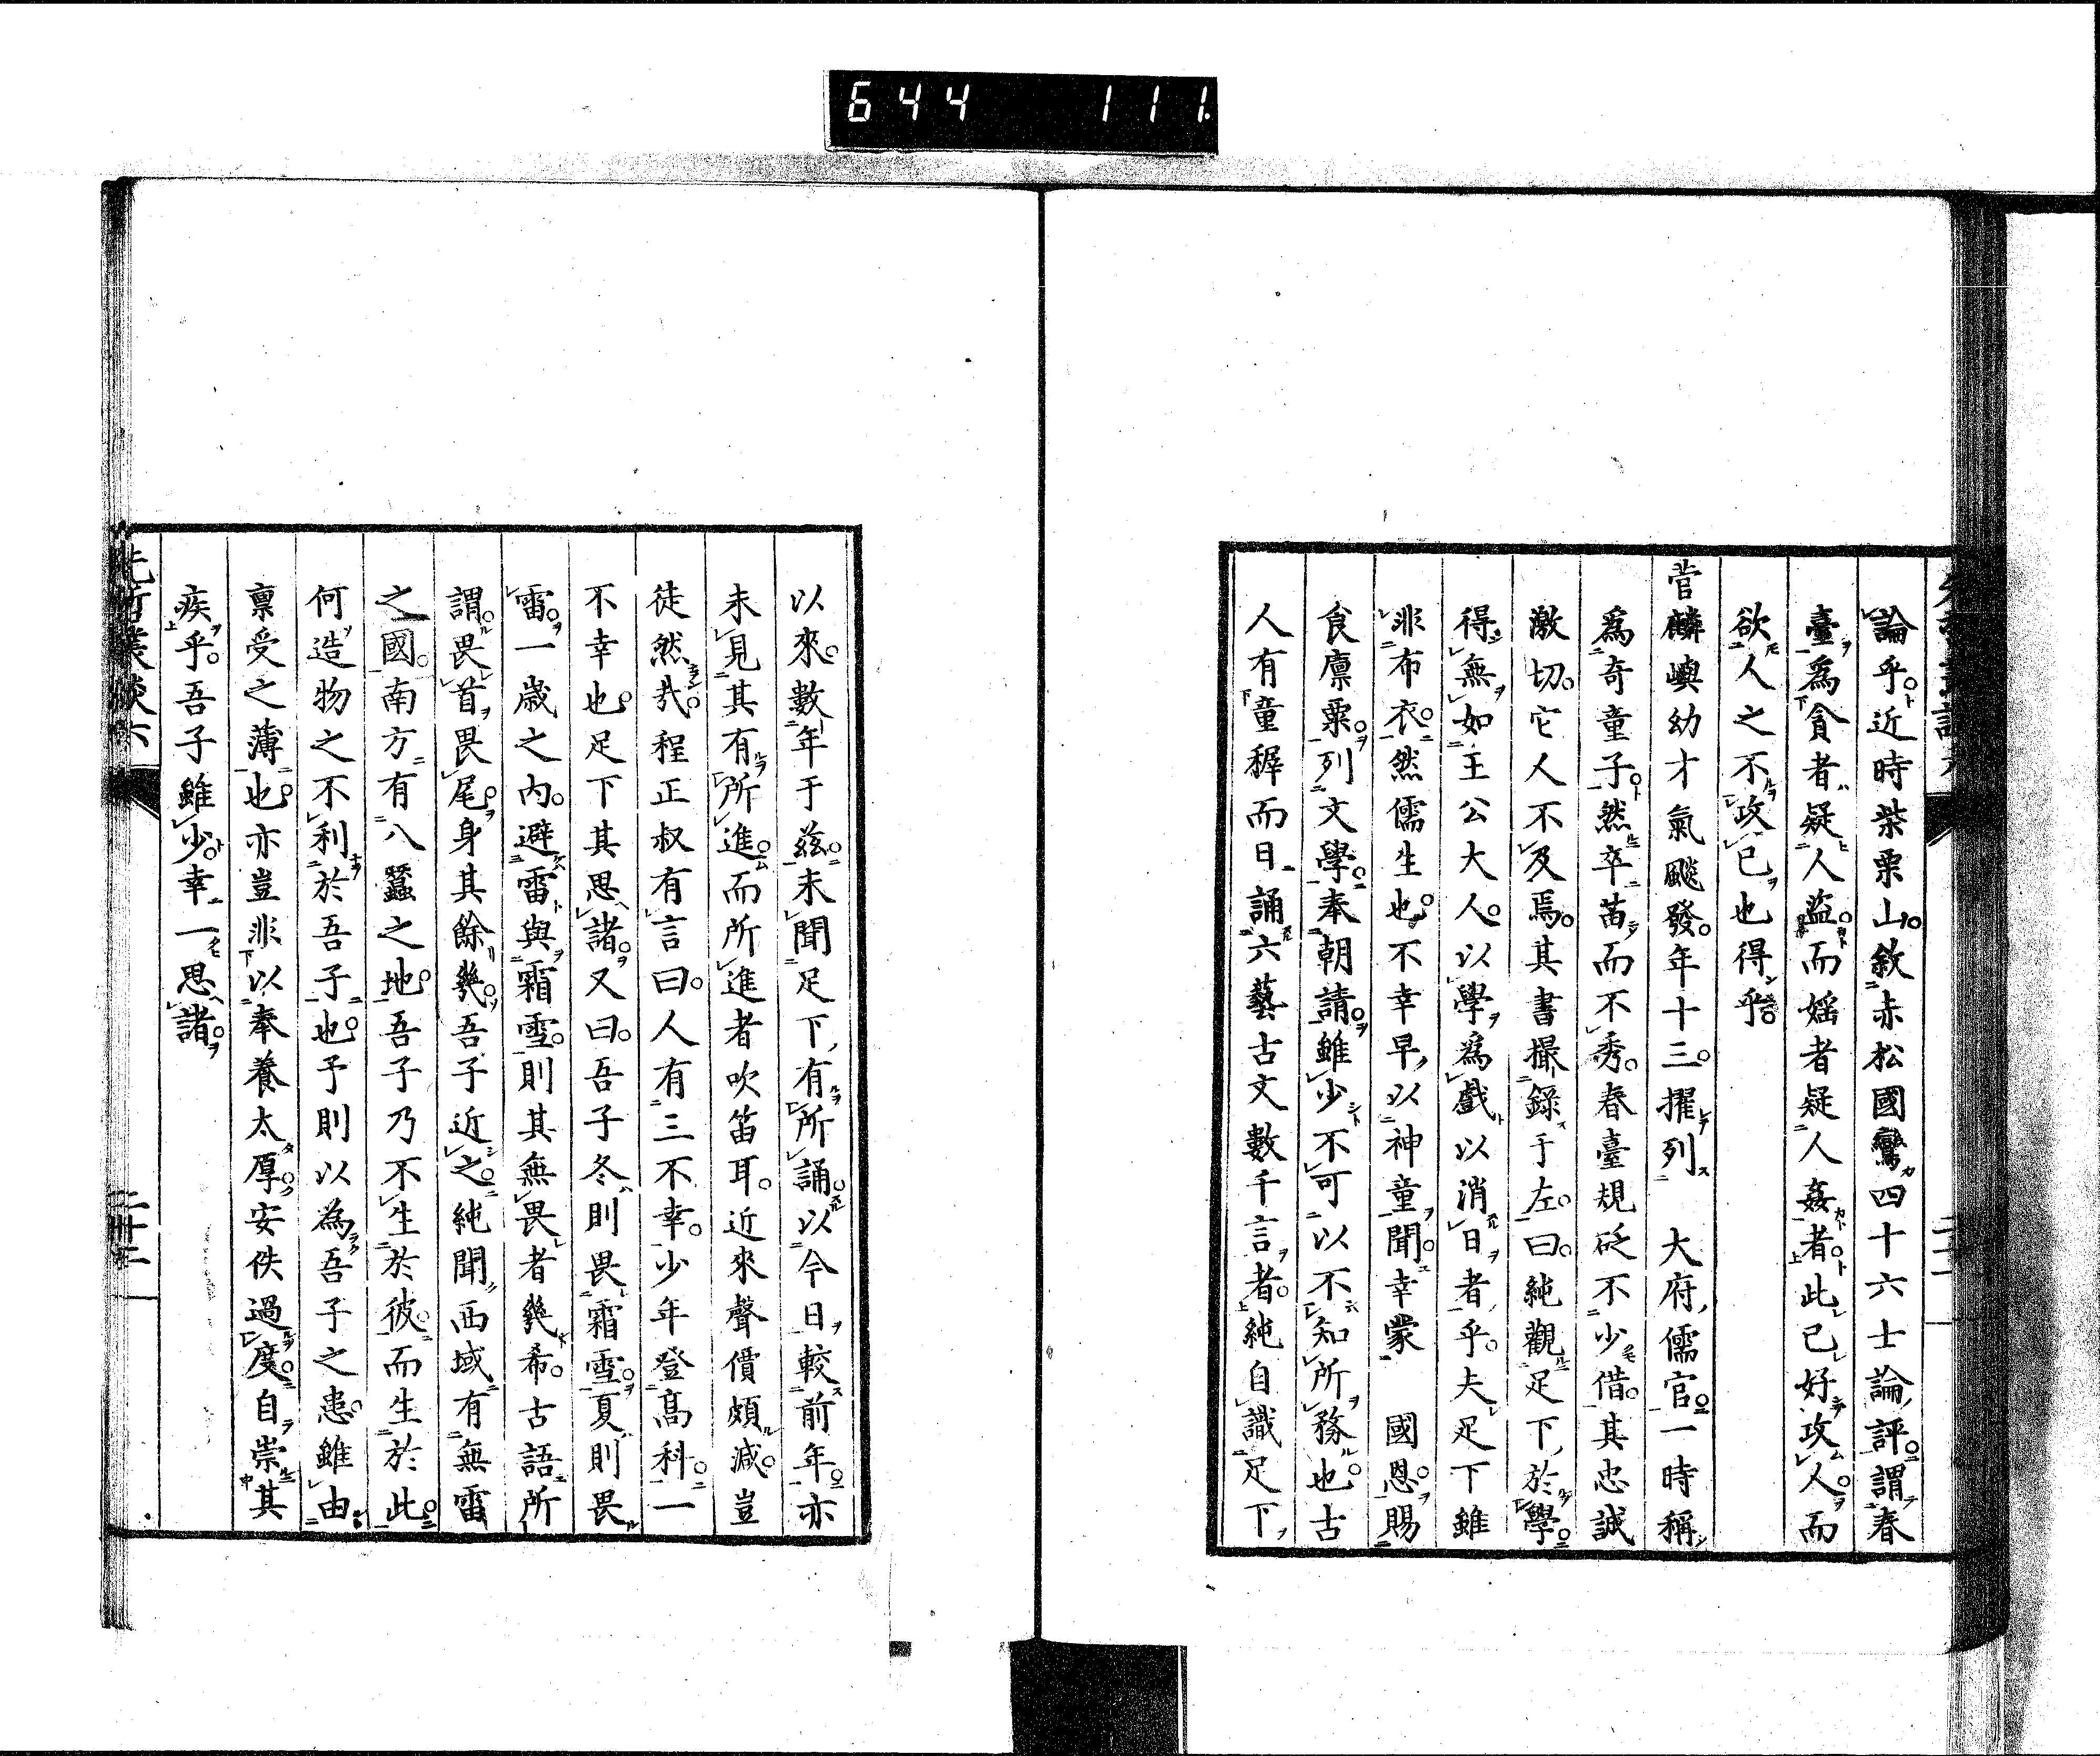 644 111.
論乎近時柴栗山敘赤松國鸞四十六士論評謂春
臺爲貪者疑人盜而婬者疑人姦者此己好攻人而
欲人之不攻己也得乎
菅麟嶼幼才氣飈發年十三擢列 大府儒官一時稱
爲奇童子然卒苗而不秀春臺規砭不少借其忠誠
激切它人不及焉其書撮錄于左曰純觀足下於學
得無如王公大人以學爲戲以消日者乎夫足下雖
非布衣然儒生也不幸早以神童聞幸蒙 國恩賜
食廩粟列文學奉朝請雖少不可以不知所務也古
人有童稺而日誦六藝古文數千言者純自識足下
以來數年于茲未聞足下有所誦以今日較前年亦
未見其有所進而所進者吹笛耳近來聲價頗減豈
徒然哉程正叔有言曰人有三不幸少年登髙科一
不幸也足下其思諸又曰吾子冬則畏霜雪夏則畏
雷一歲之內避雷與霜雪則其無畏者幾希古語所
謂畏首畏尾身其餘幾吾子近之純聞西域有無雷
之國南方有八蠶之地吾子乃不生於彼而生於此
何造物之不利於吾子也予則以為吾子之患雖由
禀受之薄也亦豈非以奉養太厚安佚過度自崇其
疾乎吾子雖少幸一思諸
先哲叢談六